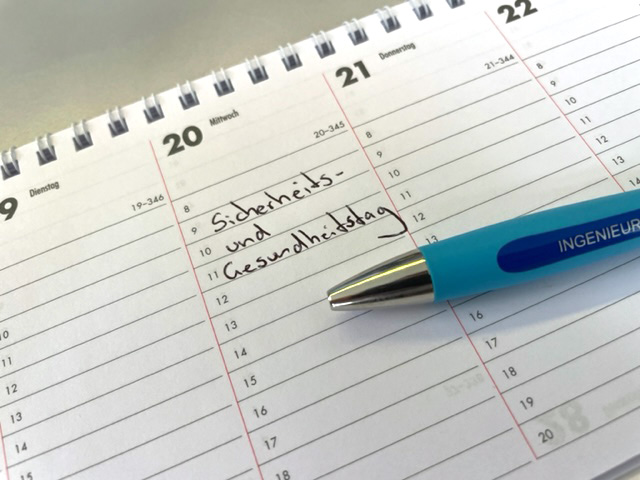 9 Dienstag
19-346
10
11
12
13
14
15
20 Mittwoch
20-345
8
9 Sicherheits-
10 und
11 Gesundheitstag
12
13
14
15
16
17
18
21 Donnerstag
21-344
8
9
10
11
12
13
16
17
18
19
20
22
8
9
10
11
12
13
14
INGENIEUR